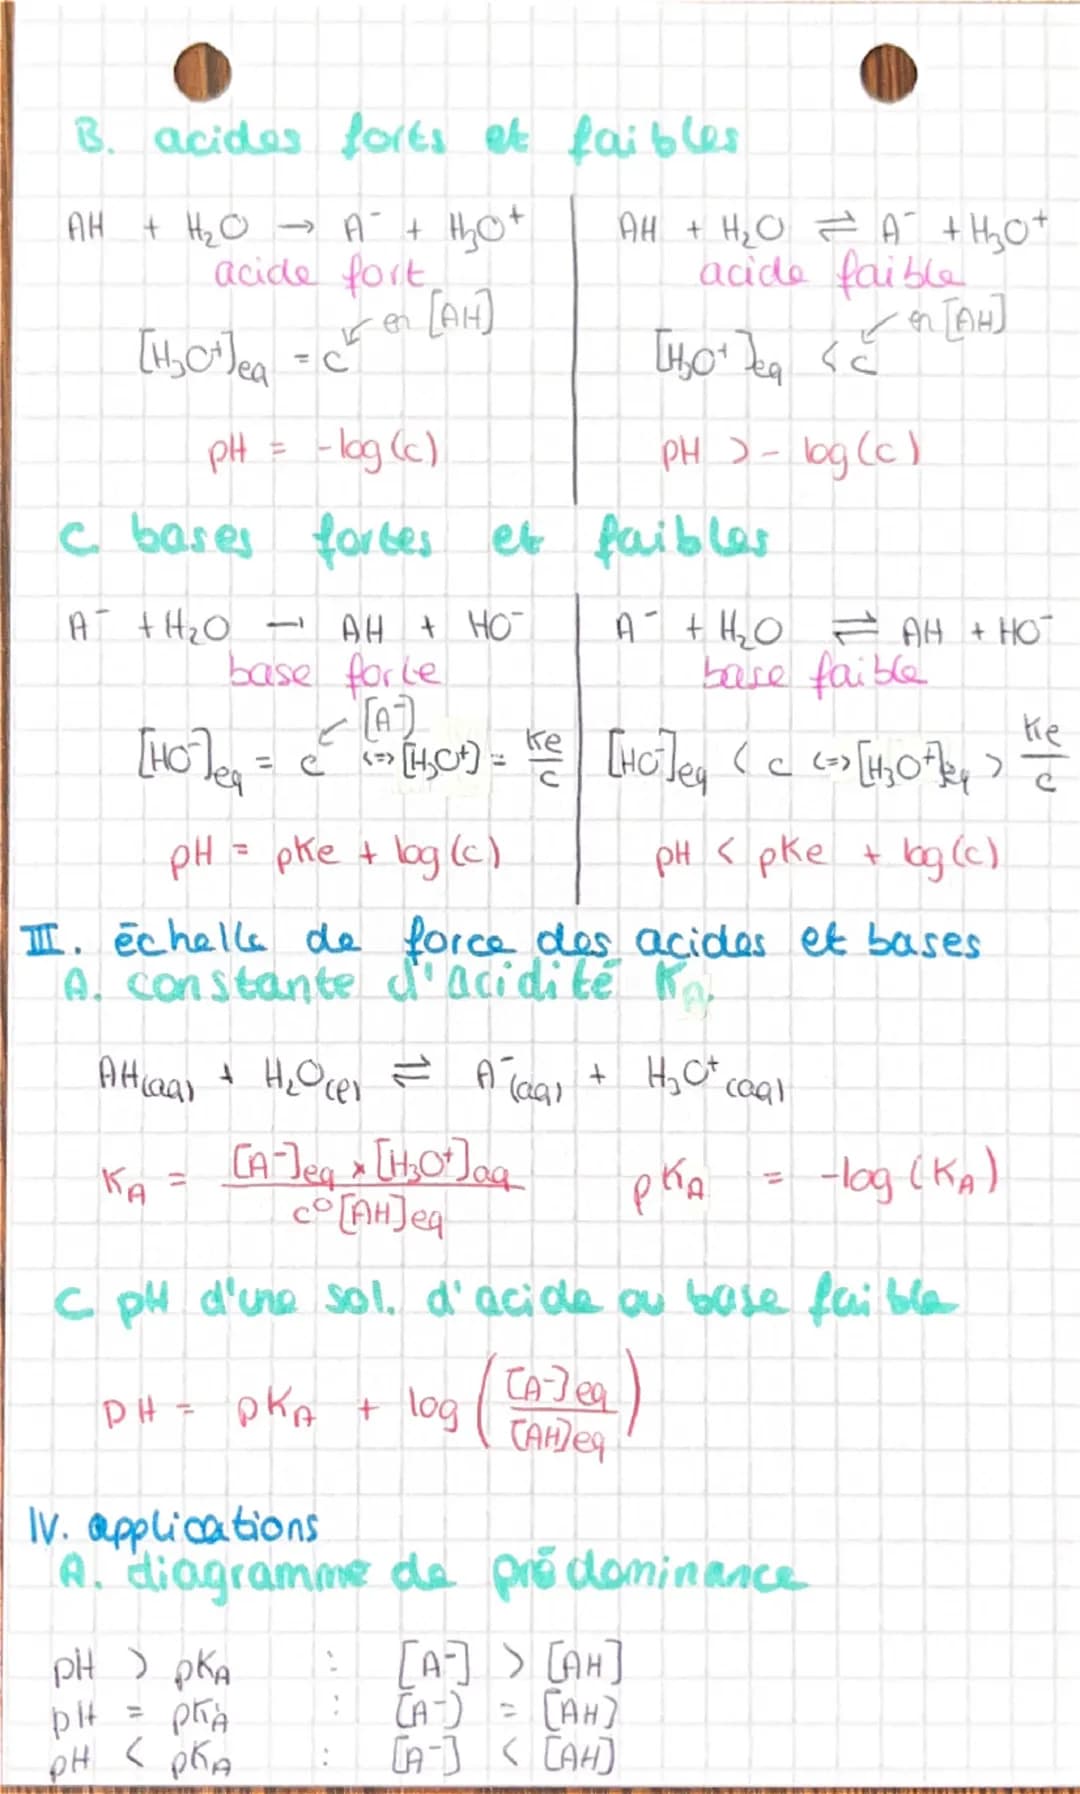 B. acides forts et faibles
AH + H₂O → A⁻ + H₃O⁺
acide fort
en [AH]
[H₃O⁺]eq = c
pH = -log(c)
AH + H₂O ⇌ A⁻ + H₃O⁺
acide faible
en [AH]
[H₃O⁺]eq < c
pH > - log(c)
C bases fortes et faibles
A⁻ + H₂O → AH + HO⁻
base forte
[A⁻]
[HO⁻]eq = c <=> [H₃O⁺] = Ke/c
pH = pKe + log(c)
A⁻ + H₂O ⇌ AH + HO⁻
base faible
[HO⁻]eq < c <=> [H₃O⁺]eq > Ke/c
pH < pKe + log(c)
III. échelle de force des acides et bases
A. constante d'acidité KA.
AH(aq) + H₂O(l) ⇌ A⁻(aq) + H₃O⁺(aq)
KA = [A⁻]eq × [H₃O⁺]aq / c⁰[AH]eq pKA = -log(KA)
C pH d'une sol. d'acide ou base faible
pH = pKA + log([A⁻]eq / [AH]eq)
IV. applications
A. diagramme de prédominance
pH > pKA : [A⁻] > [AH]
pH = pKA : [A⁻) = [AH]
pH < pKA : [A⁻] < [AH]